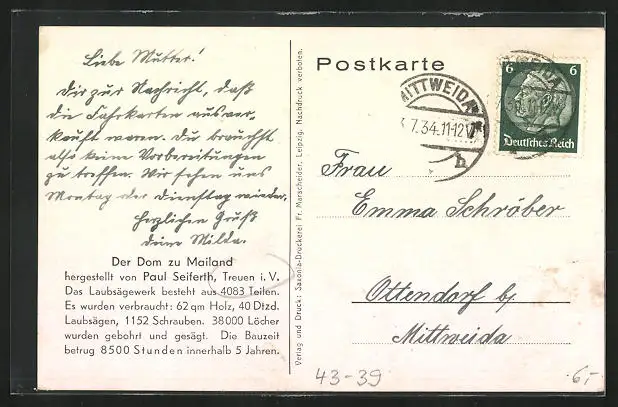 Liebe Mutter!
Dir zur Nachricht, daß
die Fahrkarten ausver-
kauft waren. Du brauchst
also keine Vorbereitungen
zu treffen. Wir sehen uns
Montag oder Dienstag wieder.
Herzlichen Gruß
deine Milda.
Der Dom zu Mailand
hergestellt von Paul Seiferth, Treuen i. V.
Das Laubsägewerk besteht aus 4083 Teilen.
Es wurden verbraucht: 62 qm Holz, 40 Dtzd.
Laubsägen, 1152 Schrauben. 38000 Löcher
wurden gebohrt und gesägt. Die Bauzeit
betrug 8500 Stunden innerhalb 5 Jahren.
Verlag und Druck: Saxonia-Druckerei Fr. Marscheider, Leipzig. Nachdruck verboten.
Postkarte
MITTWEIDA
7.34.11-12V
b
6 6
Deutsches Reich
Frau
Emma Schröber
Ottendorf b/
Mittweida
43-39
6,-